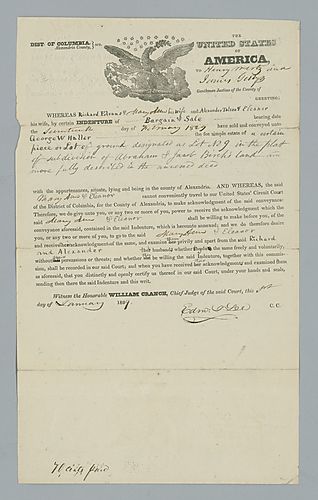 DIST. OF COLUMBIA,
Alexandria County,
THE
UNITED STATES
OF
AMERICA,
To Henry and
James
Gentlemen Justices of the County of
GREETING:
WHEREAS Richard & Mary Ann his wife and Alexander & Eleanor
his wife, by certain INDENTURE of Bargain & Sale bearing date
the Seventeenth day of February 1829 have sold and conveyed unto
George W. Haller the fee simple estate of a certain
piece or Lot of ground designated as Lot No 9 in the plat
of subdivision of Abraham & Jacob Birch's land
more fully described in the annexed deed
with the appurtenances, situate, lying and being in the county of Alexandria. AND WHEREAS, the said
Mary Ann & Eleanor cannot conveniently travel to our United States' Circuit Court
of the District of Columbia, for the County of Alexandria, to make acknowledgment of the said conveyance:
Therefore, we do give unto you, or any two or more of you, power to receive the acknowledgment which the
said Mary Ann & Eleanor shall be willing to make before you, of the
conveyance aforesaid, contained in the said Indenture, which is hereunto annexed; and we do therefore desire
you, or any two or more of you, to go to the said Mary Ann & Eleanor
and receive acknowledgment of the same, and examine privily and apart from the said Richard
and Alexander husbands whether the same freely and voluntarily,
without persuasions or threats; and whether be willing the said Indenture, together with this commis-
sion, shall be recorded in our said Court; and when you have received acknowledgment and examined
as aforesaid, that you distinctly and openly certify us thereof in our said Court, under your hands and seals,
sending then there the said Indenture and this writ.
Witness the Honorable WILLIAM CRANCH, Chief Judge of the said Court, this
day of January 18
Edm I Lee C.C.